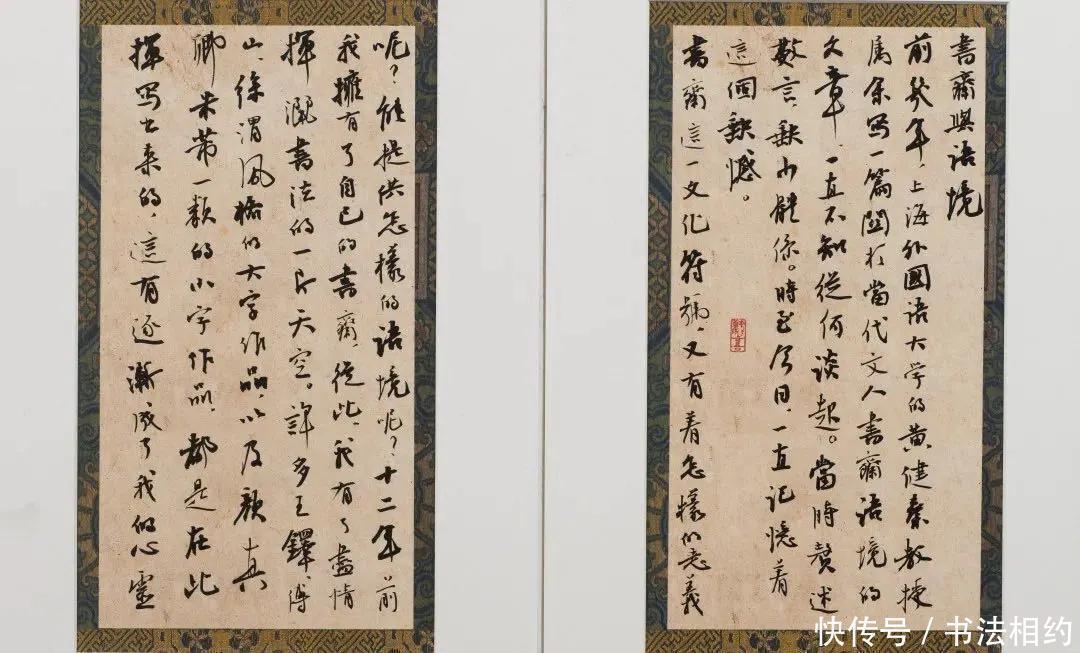 書齋與語境
前幾年，上海外國语大学的黄健秦教授
属余写一篇關於當代文人書齋语境的
文章，一直不知從何谈起。當時贅述
數言，缺少體係。時至今日，一直记憶着
這個缺憾。
書齋這一文化符號，又有着怎樣的意義
呢？能提供怎樣的语境呢？十二年前
我擁有了自己的書齋，從此，我有了盡情
揮灑書法的一片天空。許多王鐸、傅
山、徐渭風格的大字作品，以及颜真
卿、米芾一類的小字作品，都是在此
揮写出来的，這有逐漸成了我的心靈
快传号 / 书法相约